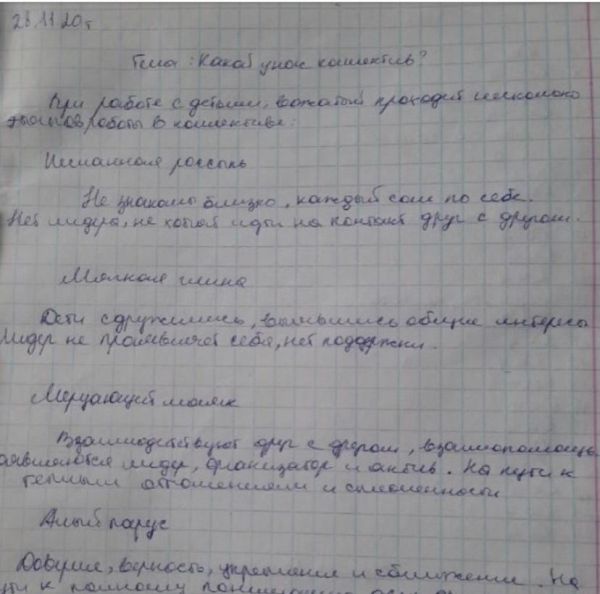 28.11.20г
Тема: Какой у нас коллектив?
При работе с детьми, вожатый проходит несколько
этапов работы в коллективе:
Песчанная россыпь
Не знакомы близко, каждый сам по себе.
Нет лидера, не хотят идти на контакт друг с другом.
Мягкая глина
Дети сдружились, выявились общие интересы
Лидер не проявляет себя, нет поддержки.
Мерцающий маяк
Взаимодействуют друг с другом, взаимопомощь
появляются лидер, организатор и актив. На пути к
теплым отношениям и сплоченности
Алый парус
Доверие, верность, укрепление и сближение. На
пути к полному